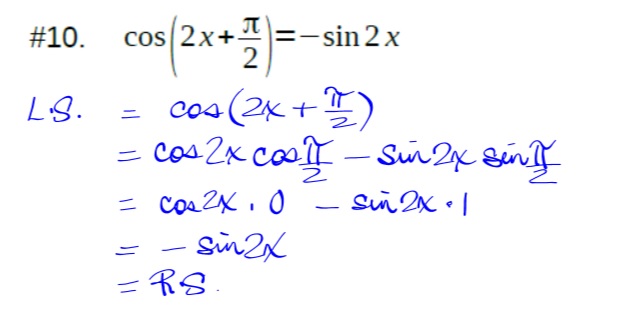 #10. cos(2x+π/2)=−sin2x
L.S. = cos(2x+π/2)
= cos2x cosπ/2 − sin2x sinπ/2
= cos2x · 0 − sin2x · 1
= − sin2x
= R.S.